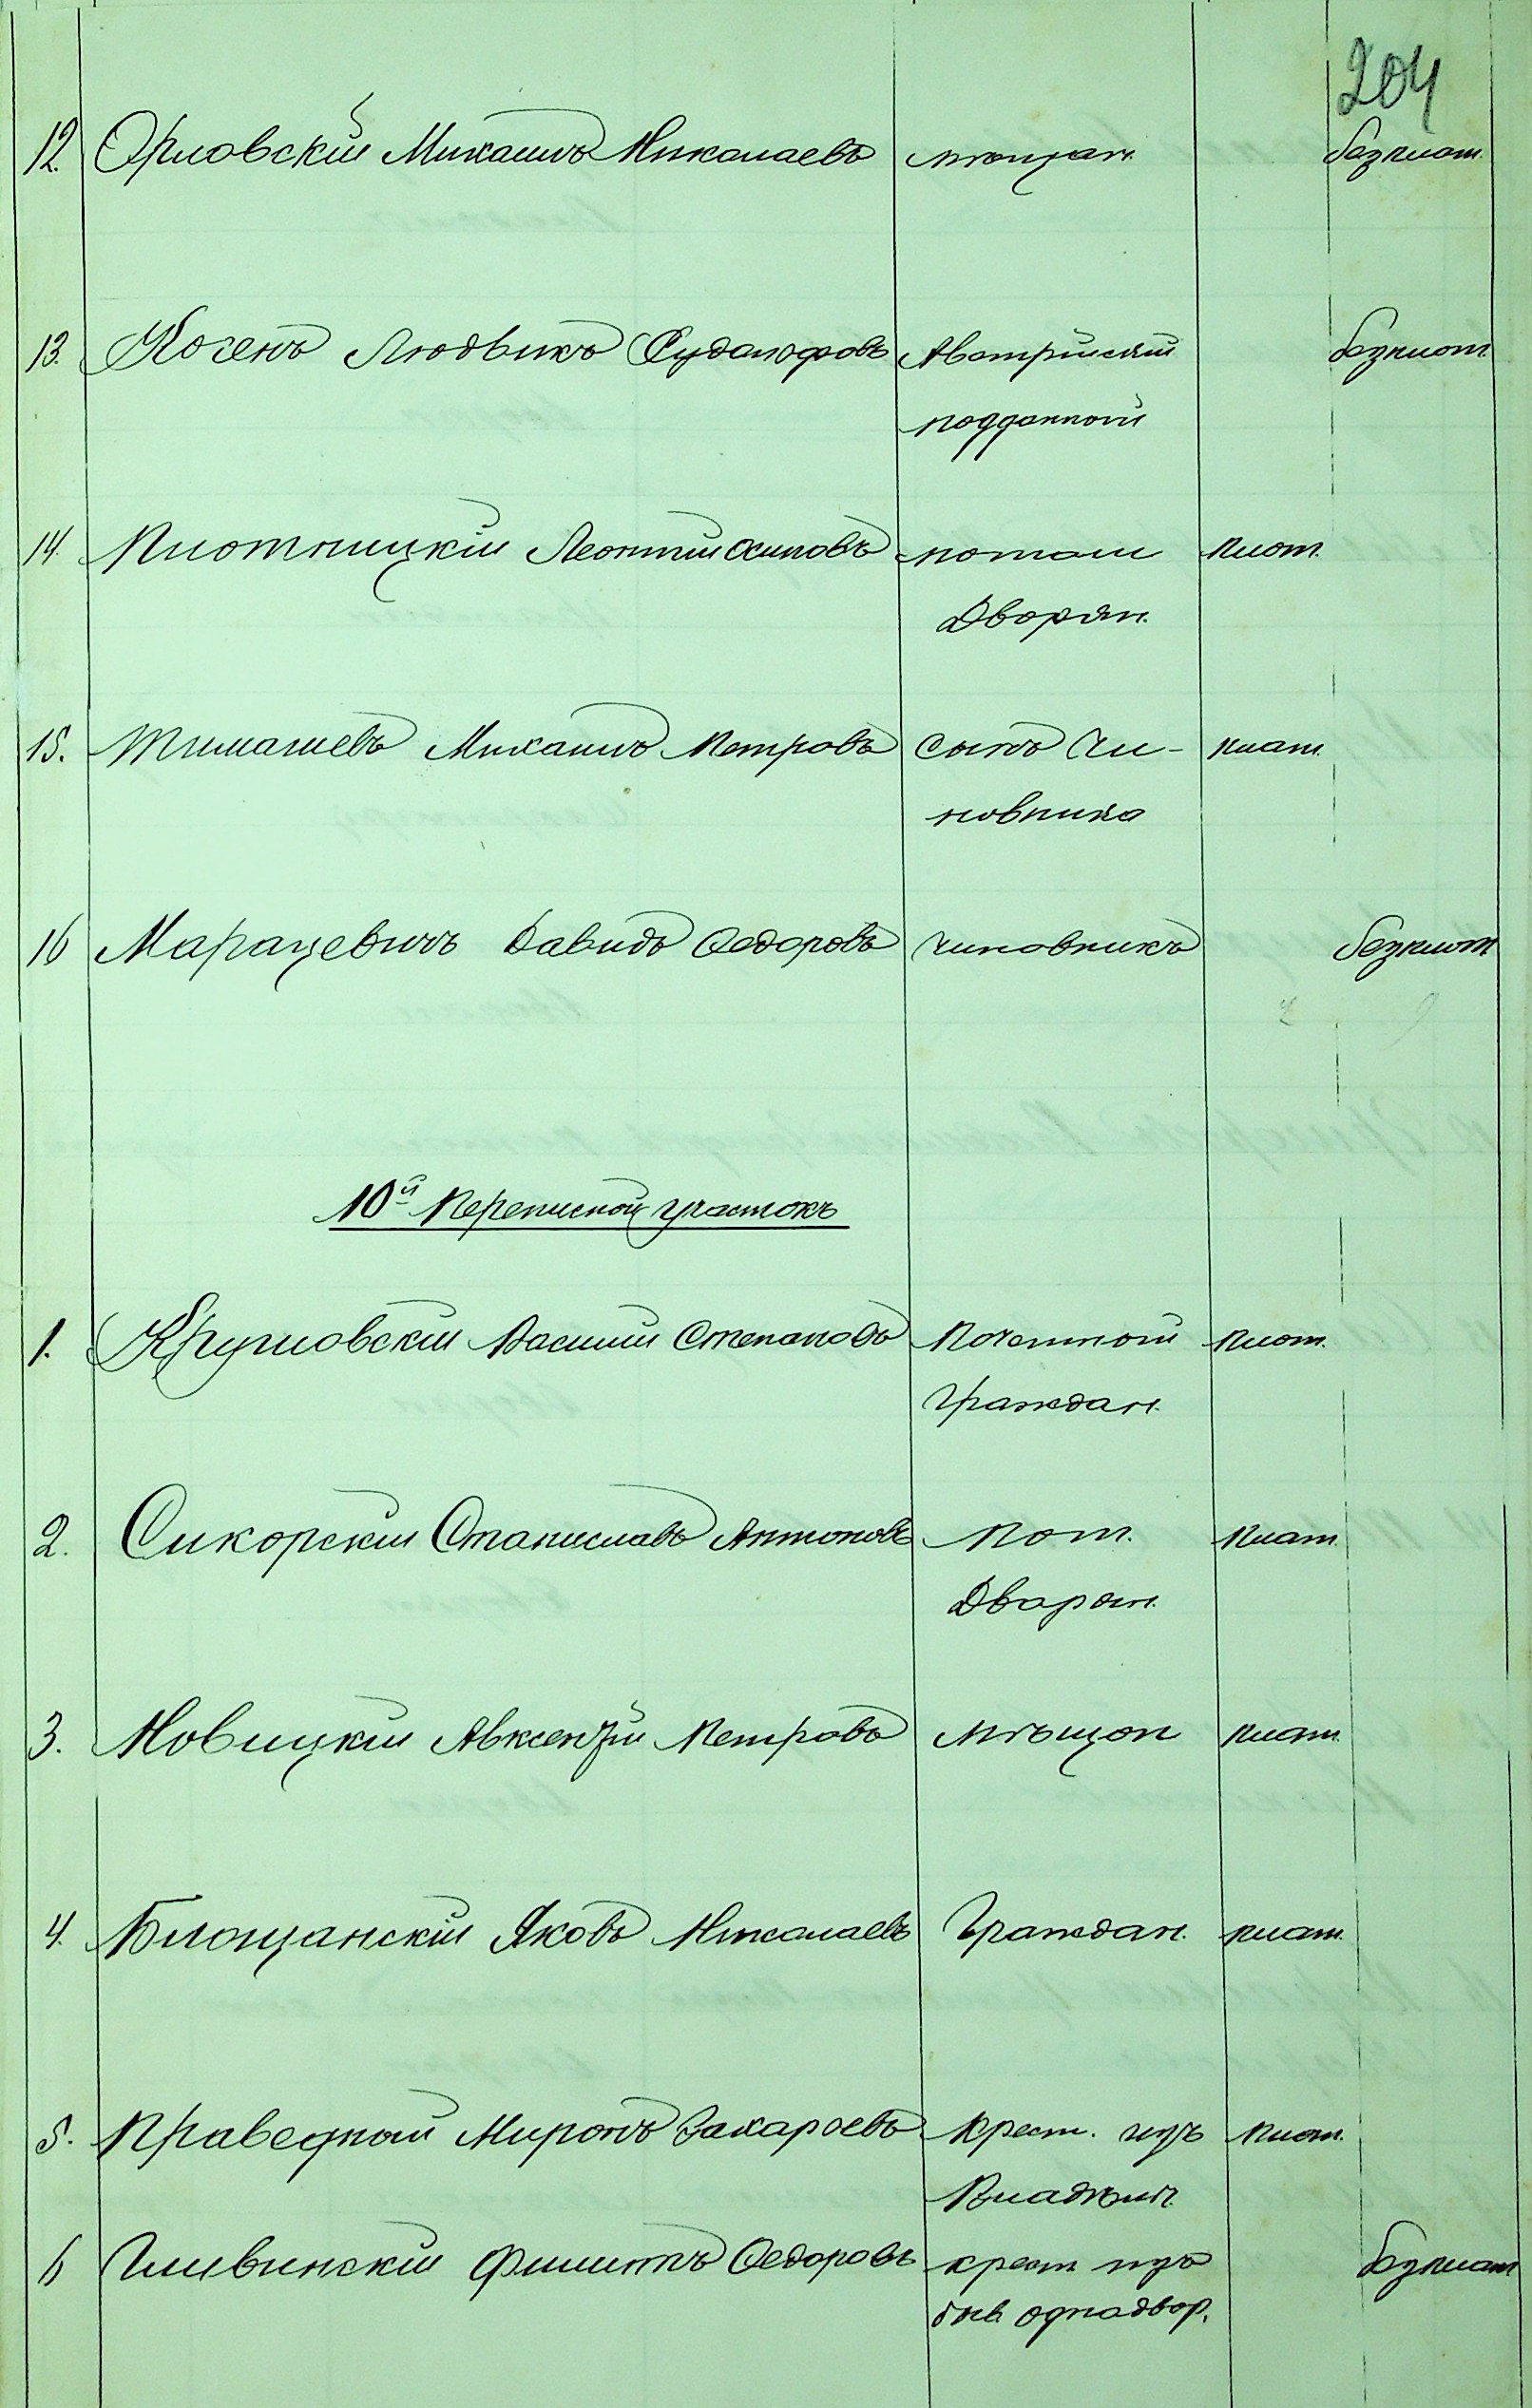 204
12. Орловскій Михаилъ Николаевъ мѣщан. безплат.
13. Косенъ Людвикъ Австрійскій безплат.
подданной
14. Плотницкій Леонтій Осиповъ потом плат.
Дворян.
15. Тимашевъ Михаилъ Петровъ сынъ Чи- плат.
новника
16 Марацевичъ Давидъ Федоровъ чиновникъ безплат
10й Переписной участокъ
1. Кругловскій Василий Степановъ Почетной плат.
граждан.
2. Сикорскій Станиславъ Антоновъ Пот. плат.
Дворян.
3. Новицкій Авксентій Петровъ мѣщан плат.
4. Блощанскій Яковъ Николаевъ Граждан. плат.
5. Праведной Миронъ Захаровъ Крест. изъ плат.
6 Гливинскій Филиппъ Федоровъ крест изъ безплат
быв. однодвор.